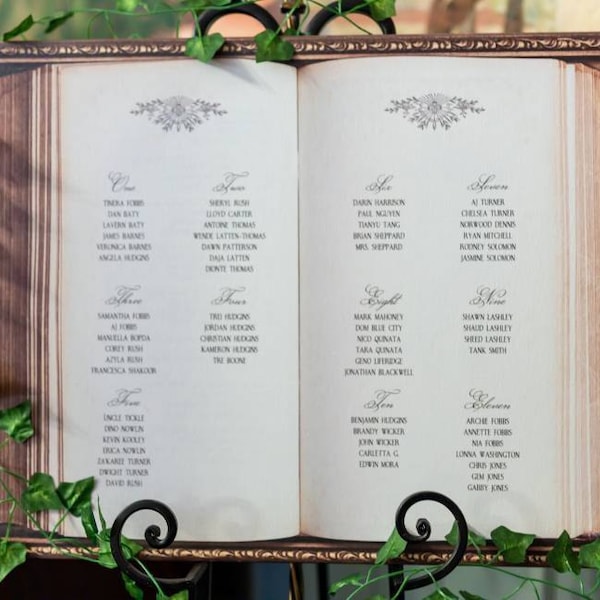 One
TINERA FOBBS
DAN BATY
LAVERN BATY
JAMES BARNES
VERONICA BARNES
ANGELA HUDGINS
Two
SHERYL RUSH
LLOYD CARTER
ANTOINE THOMAS
WENDE LATTEN-THOMAS
DAWN PATTERSON
DAJA LATTEN
DIONTE THOMAS
Three
SAMANTHA FOBBS
AJ FOBBS
MANUELLA BOPDA
COREY RUSH
AZYLA RUSH
FRANCESCA SHAKOOR
Four
TREI HUDGINS
JORDAN HUDGINS
CHRISTIAN HUDGINS
KAMERON HUDGINS
TRE BOONE
Five
UNCLE TICKLE
DINO NOWLIN
KEVIN KOOLEY
ERICA NOWLIN
ZA'KAREE TURNER
DWIGHT TURNER
DAVID RUSH
Six
DARIN HARRISON
PAUL NGUYEN
TIANYU TANG
BRIAN SHEPPARD
MRS. SHEPPARD
Seven
AJ TURNER
CHELSEA TURNER
NORWOOD DENNIS
RYAN MITCHELL
RODNEY SOLOMON
JASMINE SOLOMON
Eight
MARK MAHONEY
DOM BLUE CITY
NICO QUINATA
TARA QUINATA
GENO LIFERIDGE
JONATHAN BLACKWELL
Nine
SHAWN LASHLEY
SHAUD LASHLEY
SHEED LASHLEY
TANK SMITH
Ten
BENJAMIN HUDGINS
BRANDY WICKER
JOHN WICKER
CARLETTA G.
EDWIN MORA
Eleven
ARCHIE FOBBS
ANNETTE FOBBS
NIA FOBBS
LONNA WASHINGTON
CHRIS JONES
GEM JONES
GABBY JONES